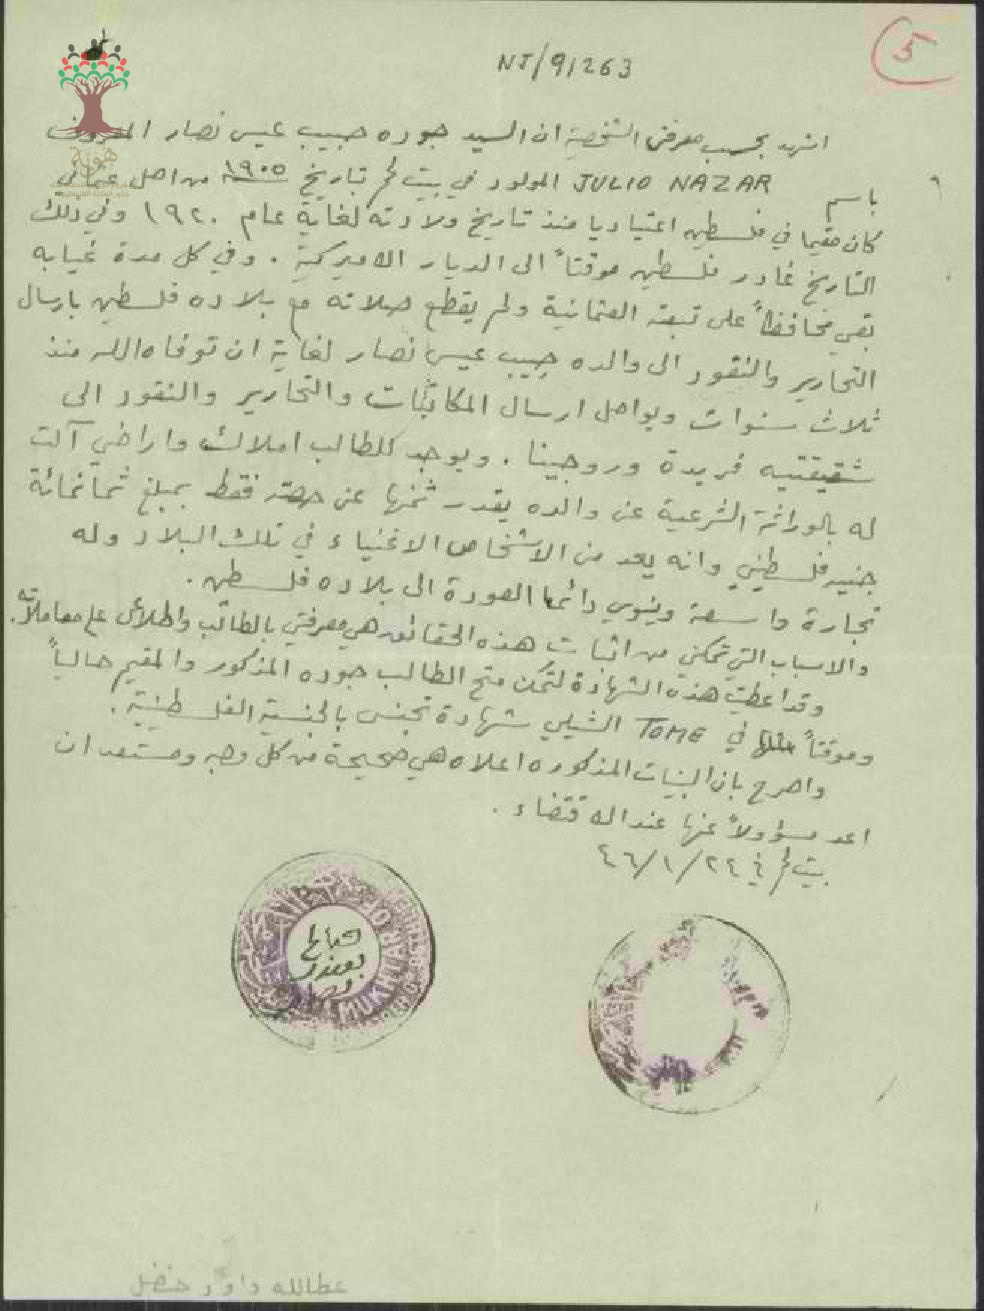 5
NJ/9/263
اشهد بحسب معرفتي الشخصية ان السيد جوده حبيب عيسى نصار المعروف
باسم JULIO NAZAR المولود في بيت لحم تاريخ ١٩٠٥ من اصل عثماني
كان مقيما في فلسطين اعتياديا منذ تاريخ ولادته لغاية عام ١٩٢٠ وفي ذلك
التاريخ غادر فلسطين موقتاً الى الديار الاميركية . وفي كل مدة غيابه
بقي محافظاً على تبعته العثمانية ولم يقطع صلاته مع بلاده فلسطين بارسال
التحارير والنقود الى والده حبيب عيسى نصار لغاية ان توفاه الله منذ
ثلاث سنوات ويواصل ارسال المكاتبات والتحارير والنقود الى
شقيقتيه فريدة وروجينا . ويوجد للطالب املاك واراضي آلت
له بالوراثة الشرعية عن والده يقدر ثمنها عن حصته فقط بمبلغ ثمانمائة
جنيه فلسطيني وانه يعد من الاشخاص الاغنياء في تلك البلاد وله
تجارة واسعة وينوي دائما العودة الى بلاده فلسطين .
والاسباب التي تمكني من اثبات هذه الحقائق هي معرفتي بالطالب واطلاعي على معاملاته .
وقد اعطيت هذه الشهادة لتمكن منح الطالب جوده المذكور والمقيم حالياً
وموقتاً في TOME الشيلي شهادة تجنس بالجنسية الفلسطينية .
واصرح بان البينات المذكوره اعلاه هي صحيحة من كل وجه ومستعد ان
اعد مسؤولاً عنها عند الاقتضاء .
بيت لحم في ٢٤/١/٤٦
MUKHTAR
عطالله داود حنضل